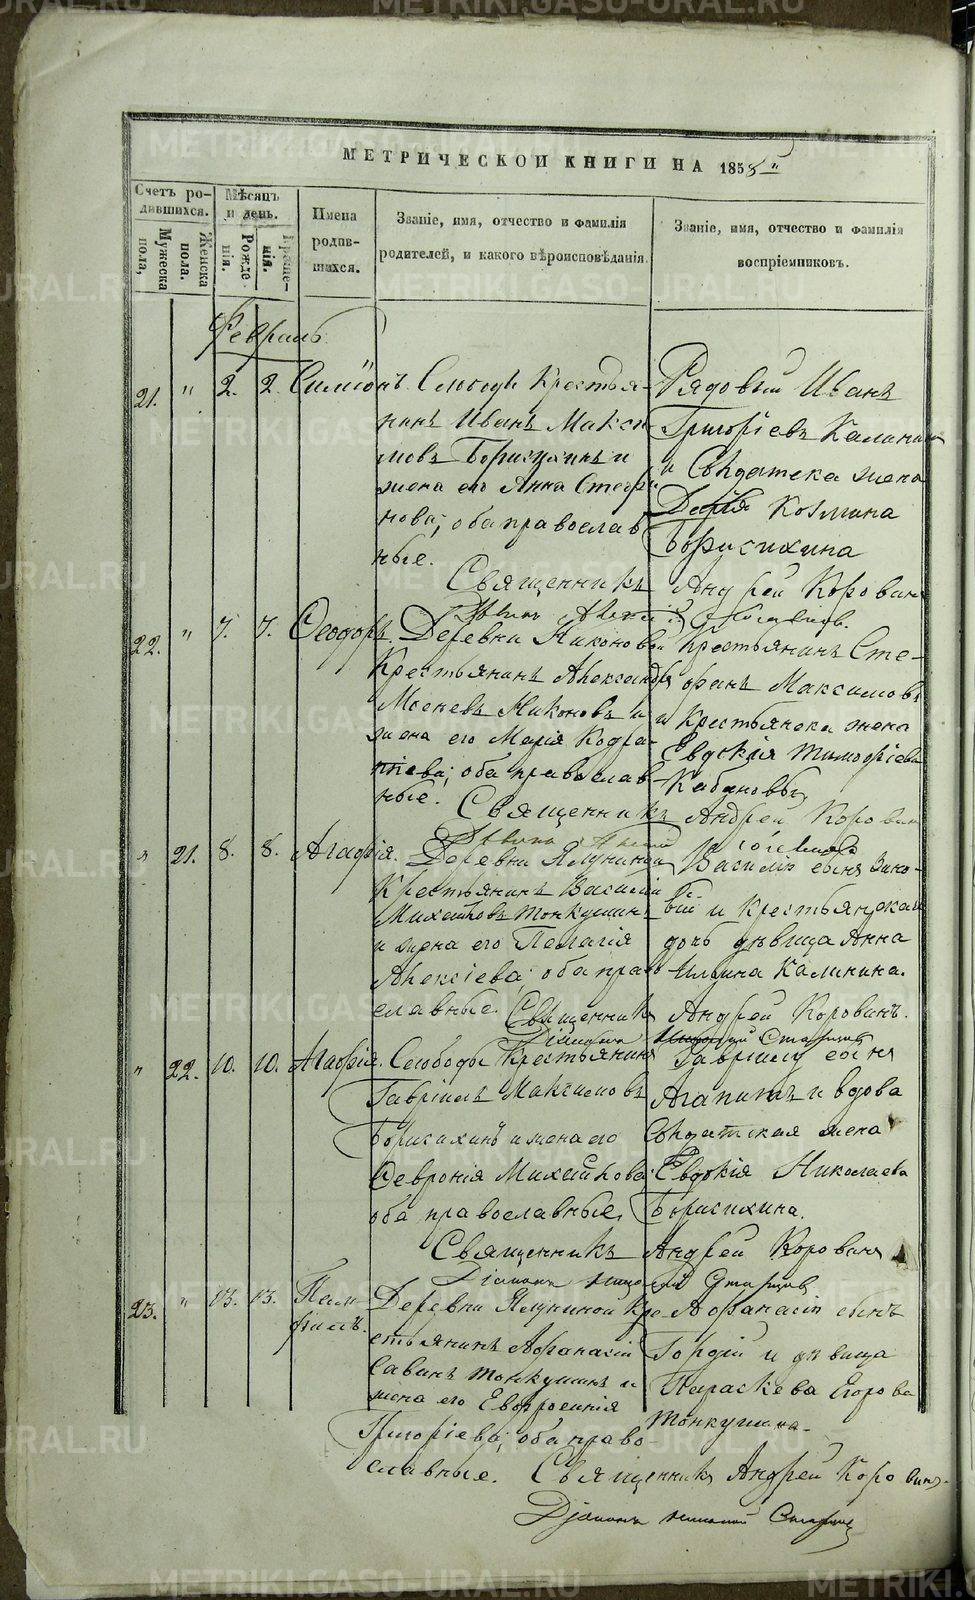 METRIKI.GASO-URAL.RU
МЕТРИЧЕСКОЙ КНИГИ НА 1858
Счетъ ро-
дившихся.
Мужеска
пола,
Женска
пола.
Мѣсяцъ
и день.
Рожде-
нія.
Креще-
нія.
Имена
родив-
шихся.
Званіе, имя, отчество и фамилія
родителей, и какого вѣроисповѣданія.
Званіе, имя, отчество и фамилія
воспріемниковъ.
Февраль
21. " 2. 2. Симіонъ. Слободы Крестья-
нинъ Иванъ Макси
мовъ Борисихинъ и
жена его Анна Стефа
нова; оба православ
ные.
Рядовый Иванъ
Григоріевъ Калининъ
и Солдатска жена
Дарія Козмина
Борисихина
Священникъ Андрей Коровинъ
22. " 7. 7. Ѳеодоръ. Деревни Никоновой
Крестьянинъ Александръ
Мосеевъ Никоновъ и
жена его Марія Кодра-
тіева; оба православ-
ные.
Крестьянинъ Сте-
фанъ Максимовъ
и Крестьянска жена
Евдокія Тимофіева
Кабановы
Священникъ Андрей Коровинъ
" 21. 8. 8. Агафія. Деревни Ялуниной
Крестьянинъ Василій
Михайловъ Тонкушинъ
и жена его Пелагія
Алексіева; оба право
славные.
Василія сынъ Зино-
вій и Крестьянская
дочь дѣвица Анна
Ильина Калинина.
Священникъ Андрей Коровинъ.
Діаконъ Николай Старцевъ
" 22. 10. 10. Агафія. Слободы Крестьянинъ
Гавріилъ Максимовъ
Борисихинъ и жена его
Февронія Михайлова;
оба православные.
Гавріилу сынъ
Агапитъ и вдова
Солдатская жена
Евдокія Николаева
Борисихина.
Священникъ Андрей Коровинъ
Діаконъ Николай Старцевъ
23. " 13. 13. Пам-
филъ.
Деревни Ялуниной Кре-
стьянинъ Афанасій
Савинъ Тонкушинъ и
жена его Евфросинія
Григоріева; оба право-
славные.
Афанасія сынъ
Гордій и дѣвица
Параскева Егорова
Тонкушина.
Священникъ Андрей Коровинъ.
Діаконъ Николай Старцевъ